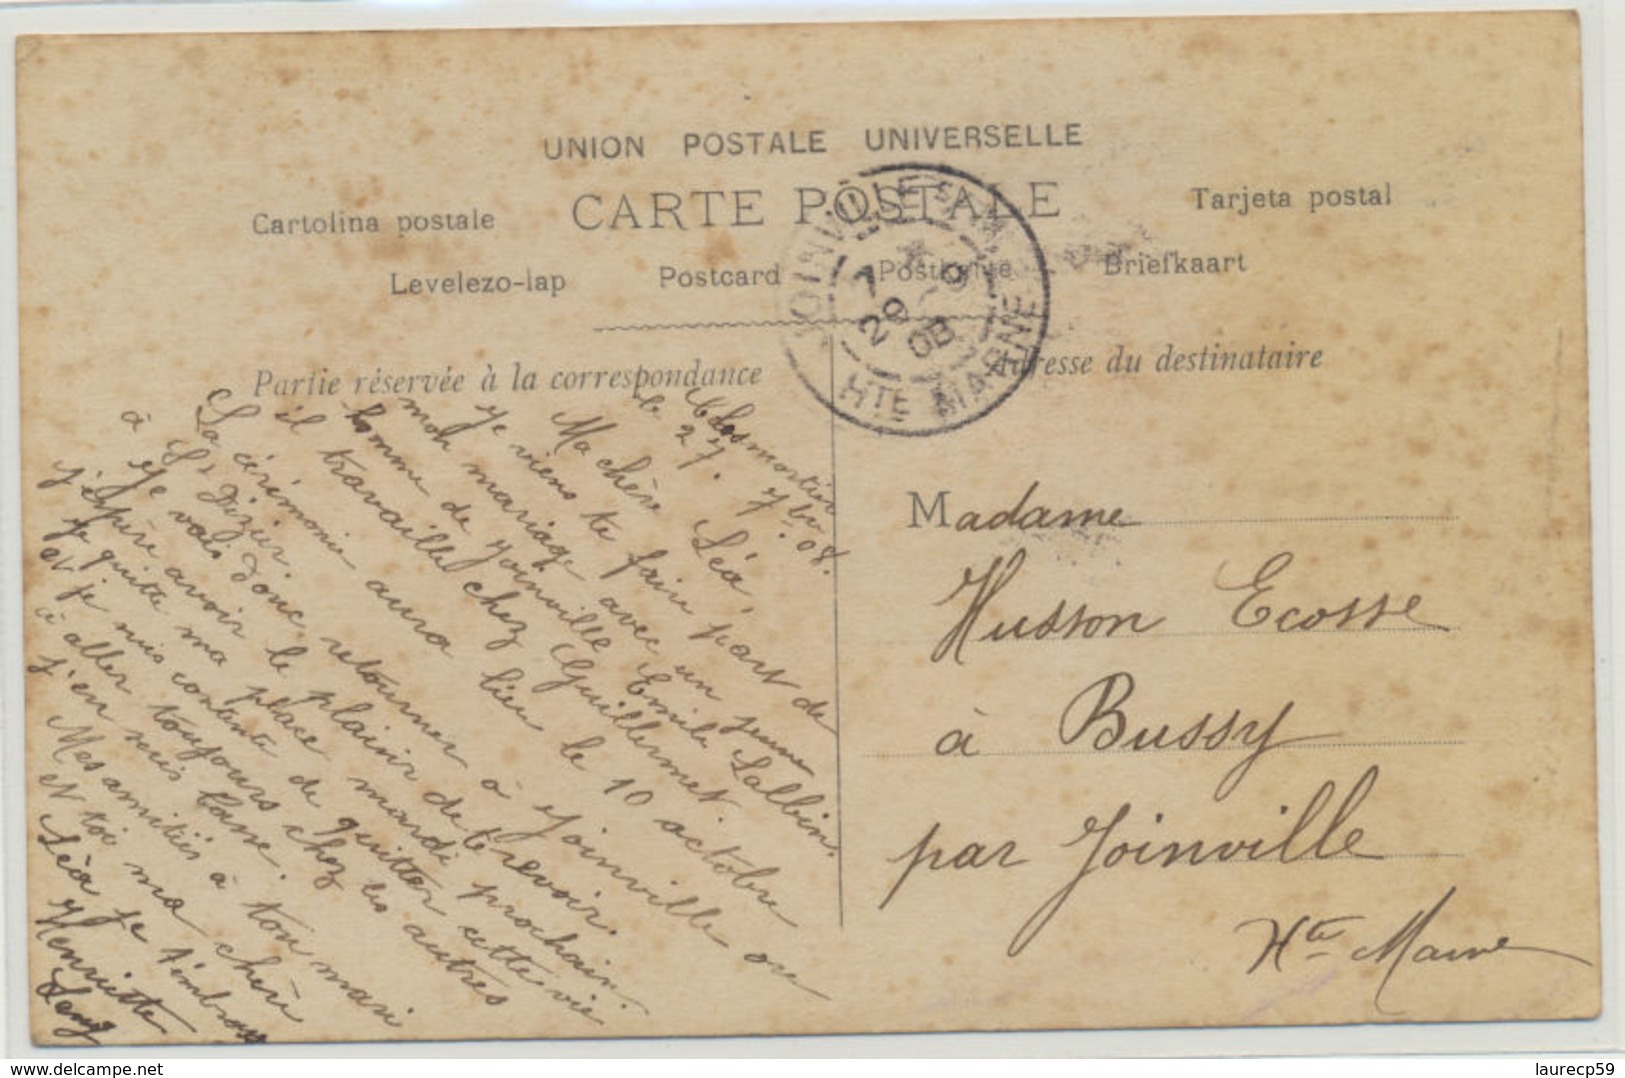 UNION POSTALE UNIVERSELLE
CARTE POSTALE
Cartolina postale
Tarjeta postal
Levelezo-lap
Postcard
Postkarte
Briefkaart
Partie réservée à la correspondance
Adresse du destinataire
JOINVILLE
HTE MARNE
7 * 9
29
08
Closmortier
le 27. 7bre 08.
Ma chère Léa,
Je viens te faire part de
mon mariage avec un jeune
homme de Joinville Emile Lalbin.
il travaille chez Guillermet.
La cérémonie aura lieu le 10 octobre
à St Dizier.
Je vais donc retourner à Joinville ou
j'espère avoir le plaisir de te revoir.
Je quitte ma place mardi prochain.
et je suis contente de quitter cette vie
à aller toujours chez les autres
j'en suis lasse.
Mes amitiés à ton mari
et toi ma chère
Léa je t'embrasse
Henriette
Lang
Madame
Husson Ecosse
à Bussy
par Joinville
Hte Marne
delcampe.net
laurecp59